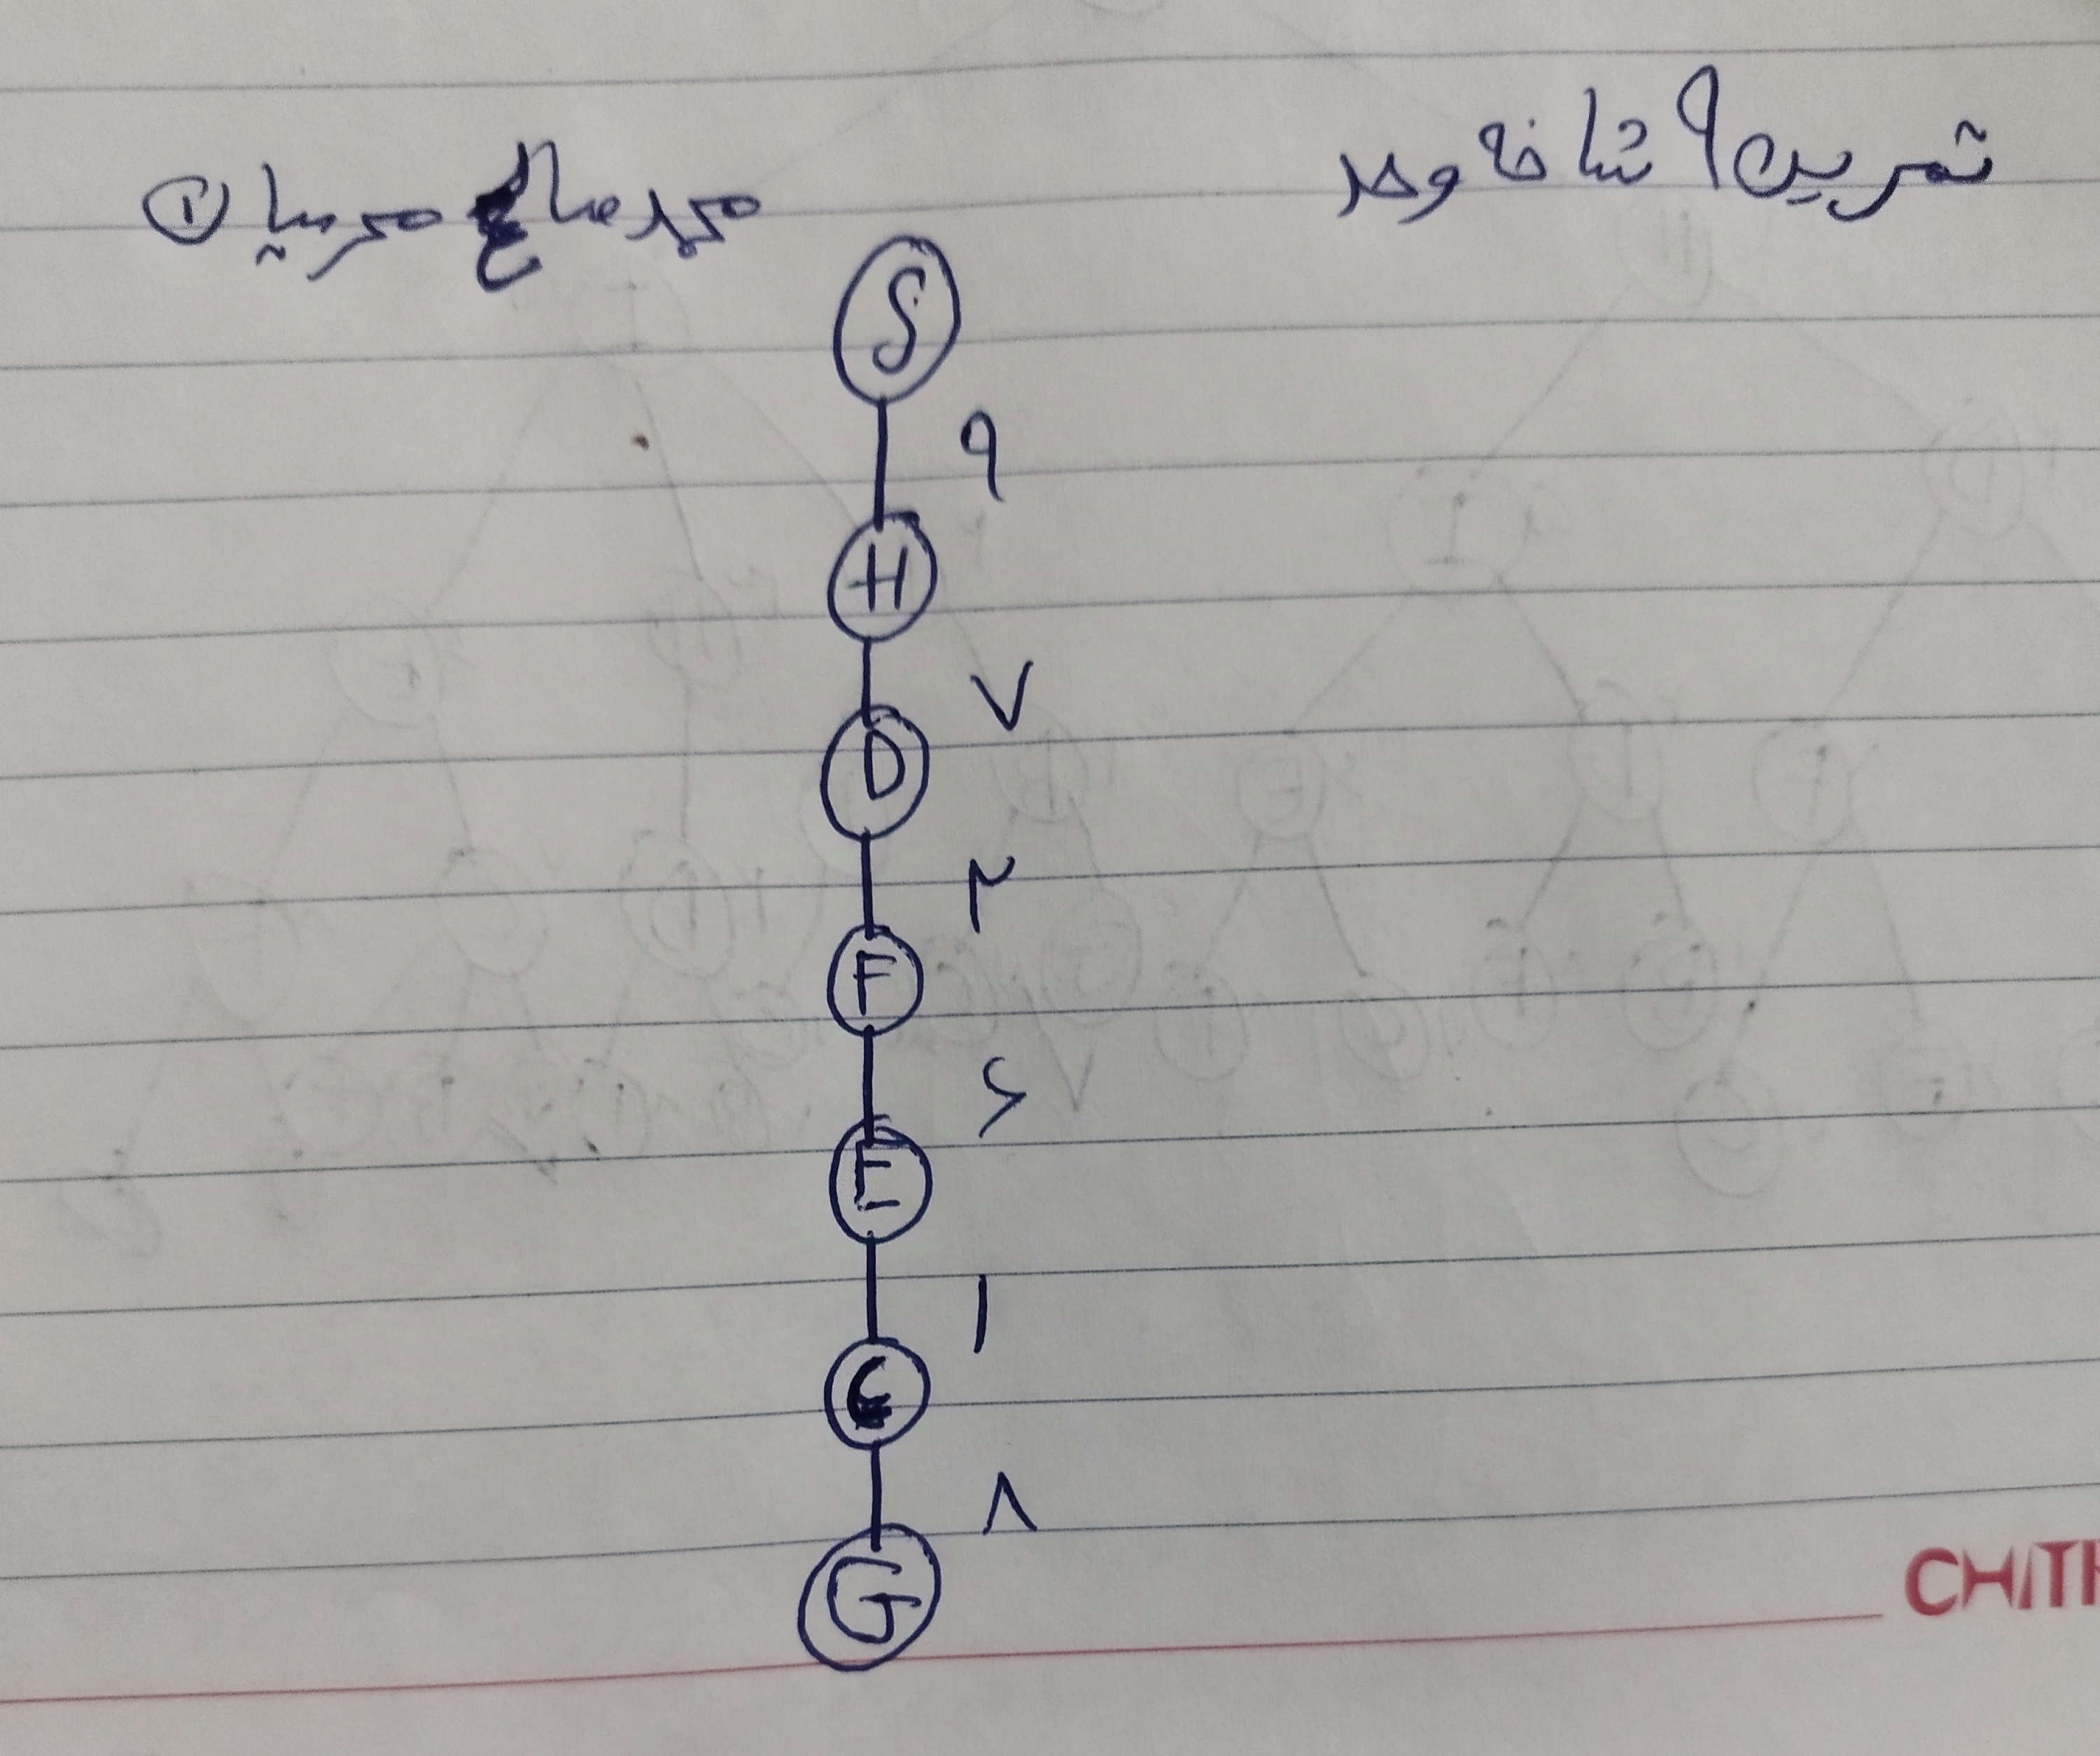 تمرین ۹ شاخه وحد
محمد صالح محرمیان ①
S
۹
H
۷
D
۲
F
۶
E
۱
C
۸
G
CHITI